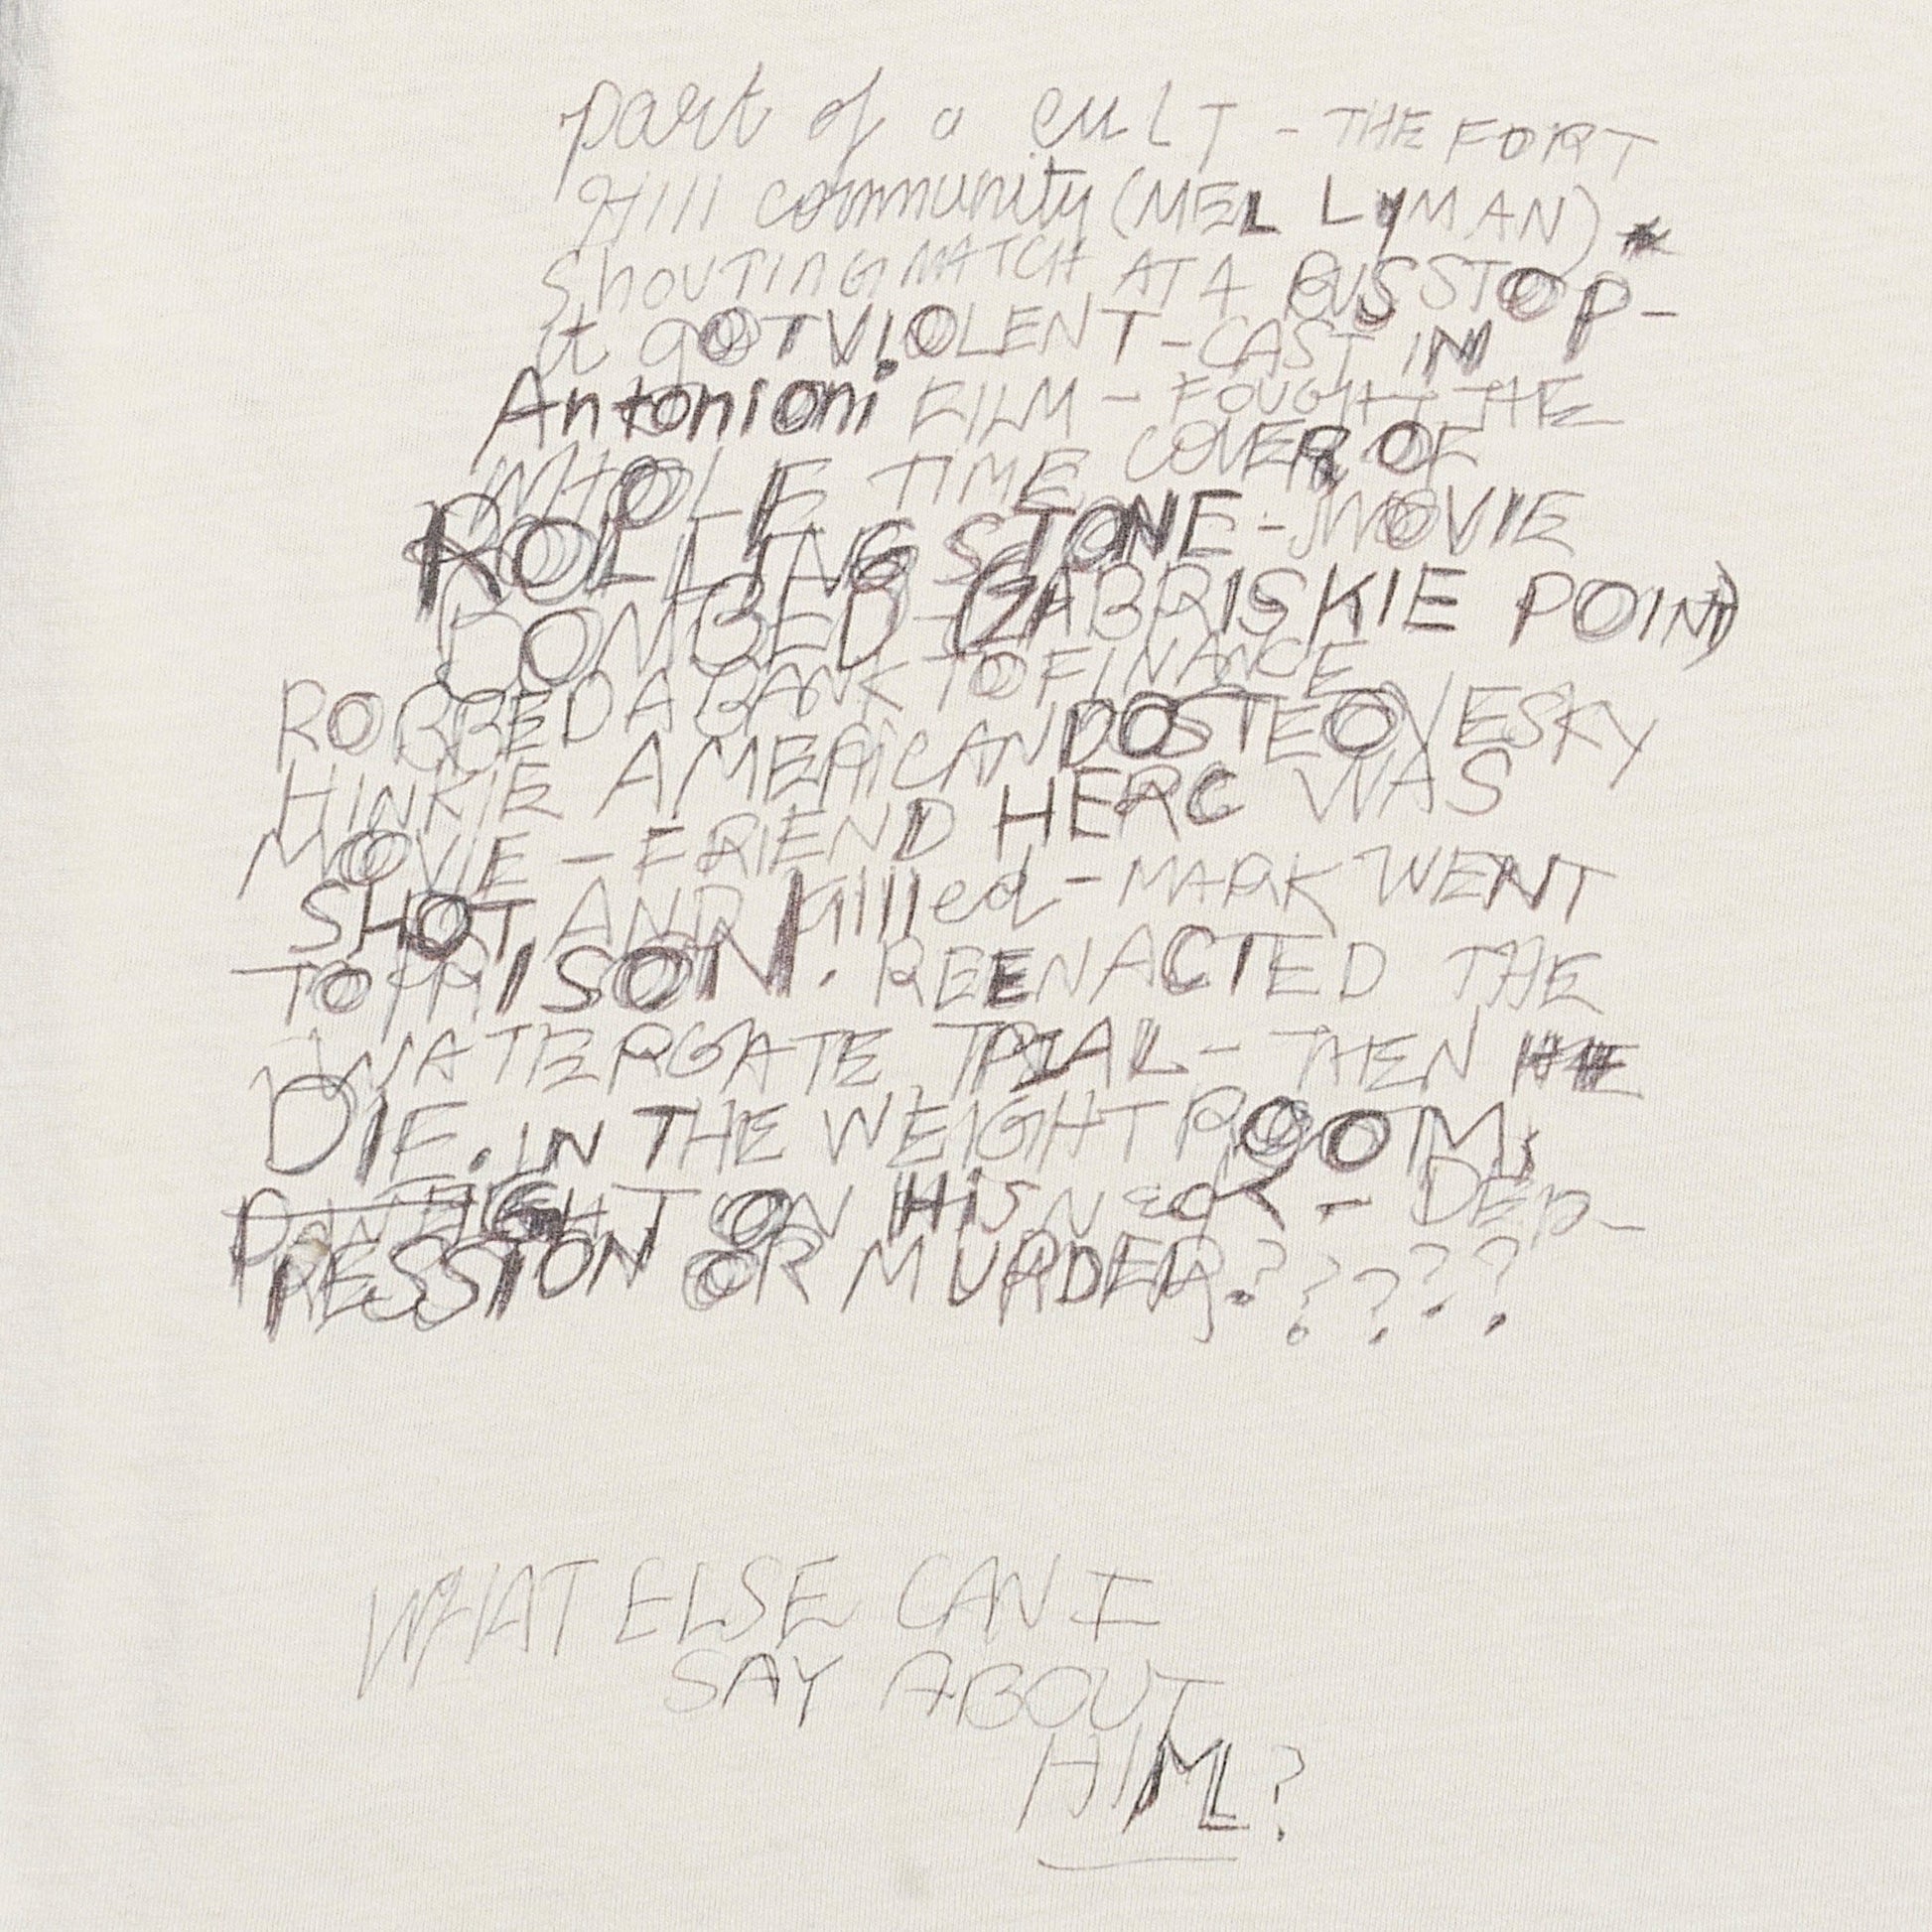 part of a cuLT - THE FORT
Hill community (MEL LyMAN) *
ShOUTinG MATCH AT A BUS STOP -
it gOT ViOLENT - CAST IN
Antonioni FILM - FOUGHT THE
WHOLE TIME COVER OF
ROLLING STONE - MOVIE
BOMBED - (ZABRISKIE POINT)
ROBBED A BANK TO FINANCE
HINKIE AMERiCAN DOSTEOVESKY
MOVIE - FRIEND HERC WAS
SHOT AND Killed - MARK WENT
TO PRISON. REENACTED THE
WATERGATE TRIAL - THEN HE
DIE. IN THE WEIGHT ROOM,
WEIGHT ON HiS NecK - DEP-
RESSION OR MURDER?????
WHAT ELSE CAN I
SAY ABOUT
HIM?